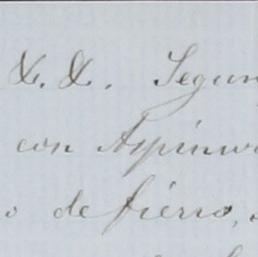 &. &. Segun
con Aspinw
o de fierro,